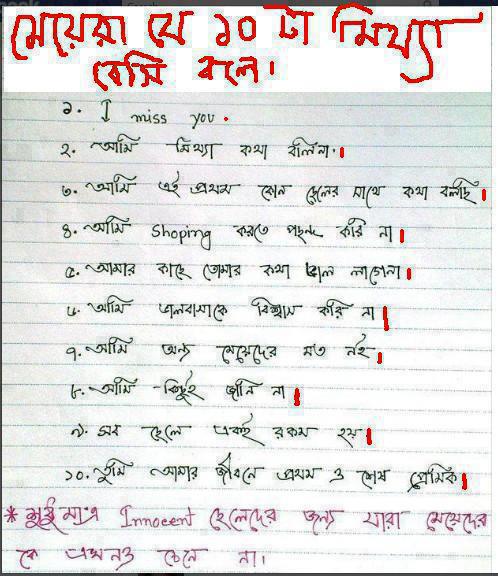 মেয়েরা যে ১০ টা মিথ্যা
বেসি বলে।
১. I miss you.
২. আমি মিথ্যা কথা বলিনা।
৩. আমি এই প্রথম কোন ছেলের সাথে কথা বলছি।
৪. আমি Shoping করতে পছন্দ করি না।
৫. আমার কাছে তোমার কথা ভাল লাগেনা।
৬. আমি ভালবাসাকে বিশ্বাস করি না।
৭. আমি অন্য মেয়েদের মত নই।
৮. আমি কিছুই জানি না।
৯. সব ছেলে একই রকম হয়।
১০. তুমি আমার জীবনে প্রথম ও শেষ প্রেমিক।
* শুধু মাত্র Innocent ছেলেদের জন্য যারা মেয়েদের
কে এখনও চেনে না।